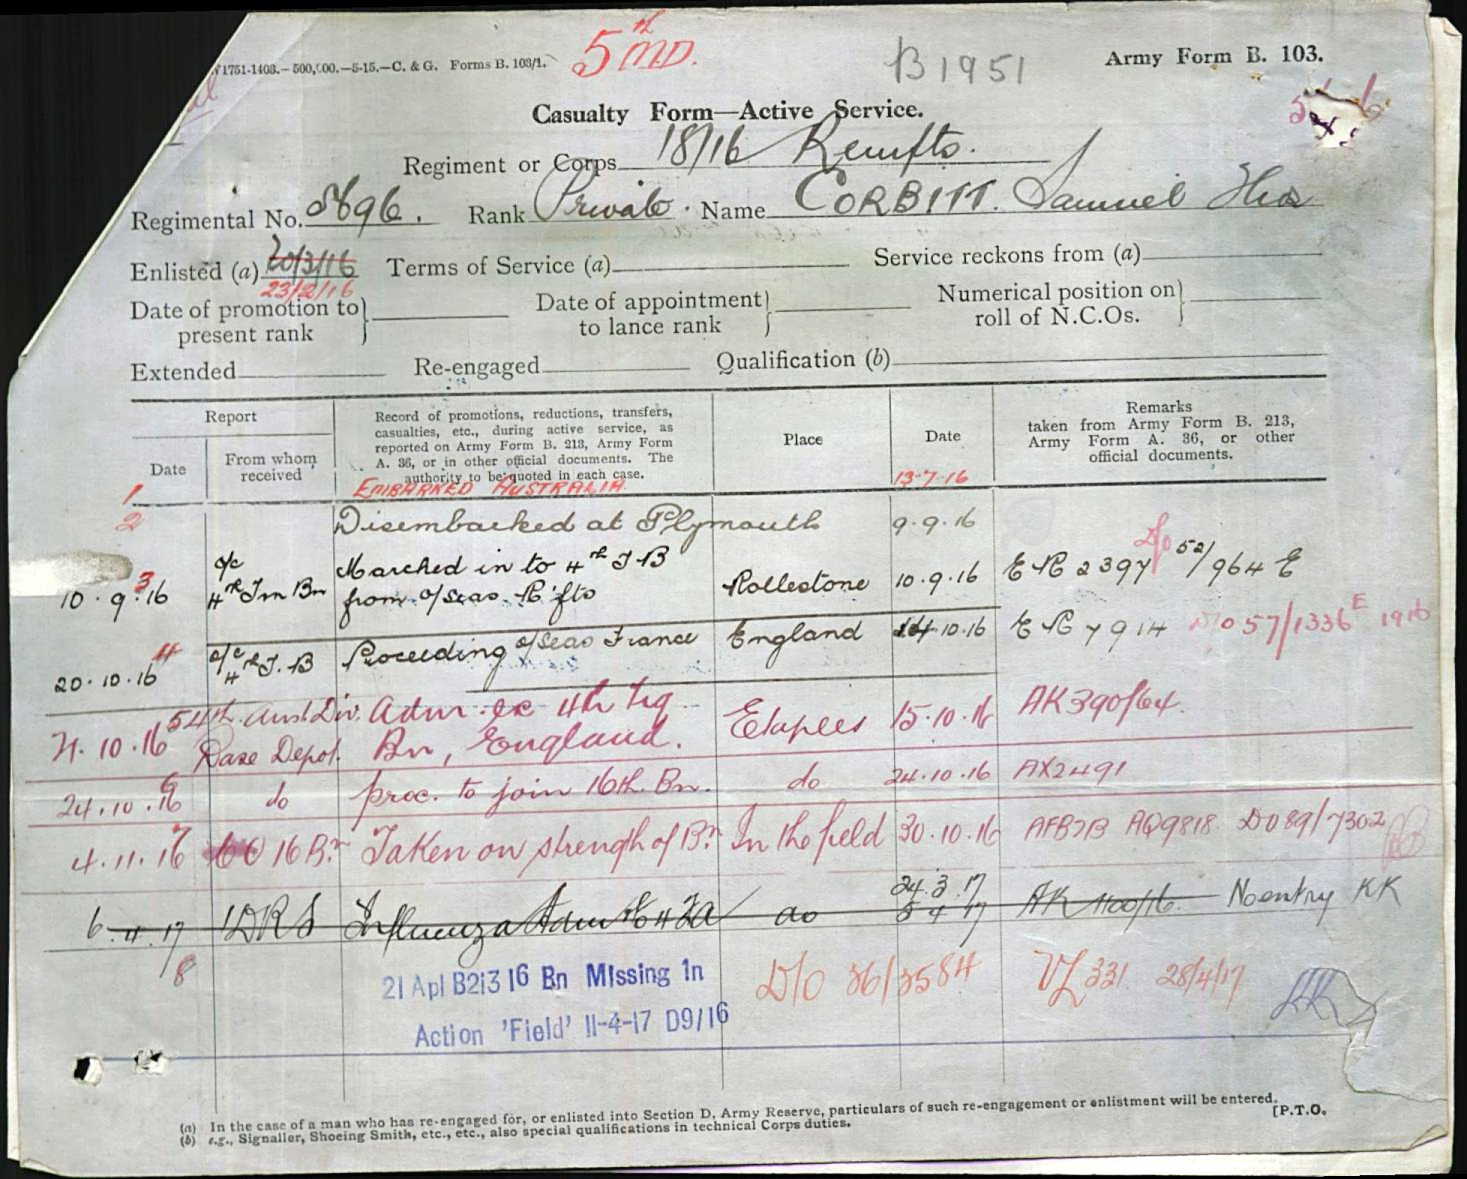 1751-1403.—500,000.—5-15.—C. & G. Forms B. 103/1.
5th MD.
B1951
Army Form B. 103.
Casualty Form—Active Service.
Regiment or Corps 18/16 Reinfts.
Regimental No. 5696. Rank Private. Name CORBITT. Samuel Thos
Enlisted (a) 20/3/16 Terms of Service (a) Service reckons from (a)
23/2/16
Date of promotion to present rank Date of appointment to lance rank Numerical position on roll of N.C.Os.
Extended Re-engaged Qualification (b)
Report
Date
From whom received
Record of promotions, reductions, transfers,
casualties, etc., during active service, as
reported on Army Form B. 213, Army Form
A. 36, or in other official documents. The
authority to be quoted in each case.
Place
Date
Remarks
taken from Army Form B. 213,
Army Form A. 36, or other
official documents.
1 EMBARKED AUSTRALIA 13-7-16
2 Disembarked at Plymouth 9.9.16
3 10.9.16 o/c 4th Trn Bn Marched in to 4th T B from o/seas Rifts Rollestone 10.9.16 E R 2397 D/o 52/964 E
4 20.10.16 o/c 4th T.B Proceeding o/seas France England 14.10.16 E R 7914 D/o 57/1336 E 1916
5 4th Aust Div. Base Depot. Adm. ex 4th Trg Bn, England. Etaples 15.10.16 AK390/64.
6 24.10.16 do proc. to join 16th Bn. do 24.10.16 AX2491
7 4.11.16 CO 16 Bn Taken on strength of Bn In the field 30.10.16 AFB213 AQ9818 DO89/7302
24.3.17
6.4.17 1DRS Influenza Adm to 4 FA do 5 4 17 No entry KK
8
21 Apl B213 16 Bn Missing in
Action 'Field' 11-4-17 D9/16
D/O 36/3584 VL 331 28/4/17
(a) In the case of a man who has re-engaged for, or enlisted into Section D, Army Reserve, particulars of such re-engagement or enlistment will be entered.
(b) e.g., Signaller, Shoeing Smith, etc., etc., also special qualifications in technical Corps duties.
[P.T.O.